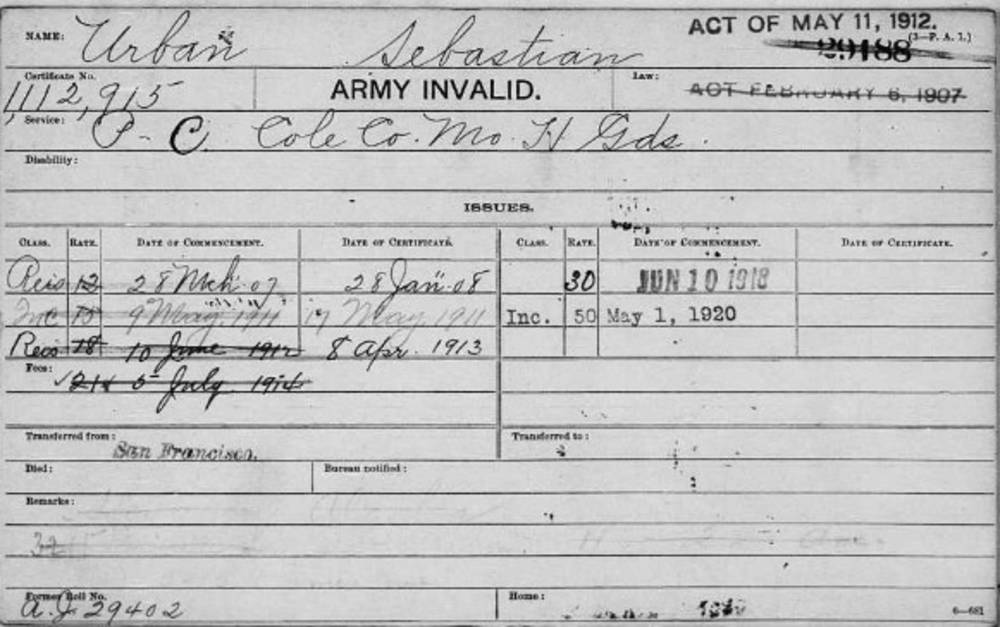 ACT OF MAY 11, 1912.
(3—P. A. I.)
NAME: Urban Sebastian 29188
Certificate No. 1112,915 ARMY INVALID. Law: ACT FEBRUARY 6, 1907
Service: P - C. Cole Co. Mo. H Gds.
Disability:
ISSUES.
CLASS. RATE. DATE OF COMMENCEMENT. DATE OF CERTIFICATE. CLASS. RATE. DATE OF COMMENCEMENT. DATE OF CERTIFICATE.
Reis 12 28 Mch. 07 28 Jan. 08 30 JUN 10 1918
Inc 15 9 May 1911 17 May 1911 Inc. 50 May 1, 1920
Reis 18 10 June 1912 8 Apr. 1913
Fees: 21 5 July 1914
Transferred from: San Francisco. Transferred to:
Died: Bureau notified:
Remarks:
Former Roll No. Home:
29402 6—681